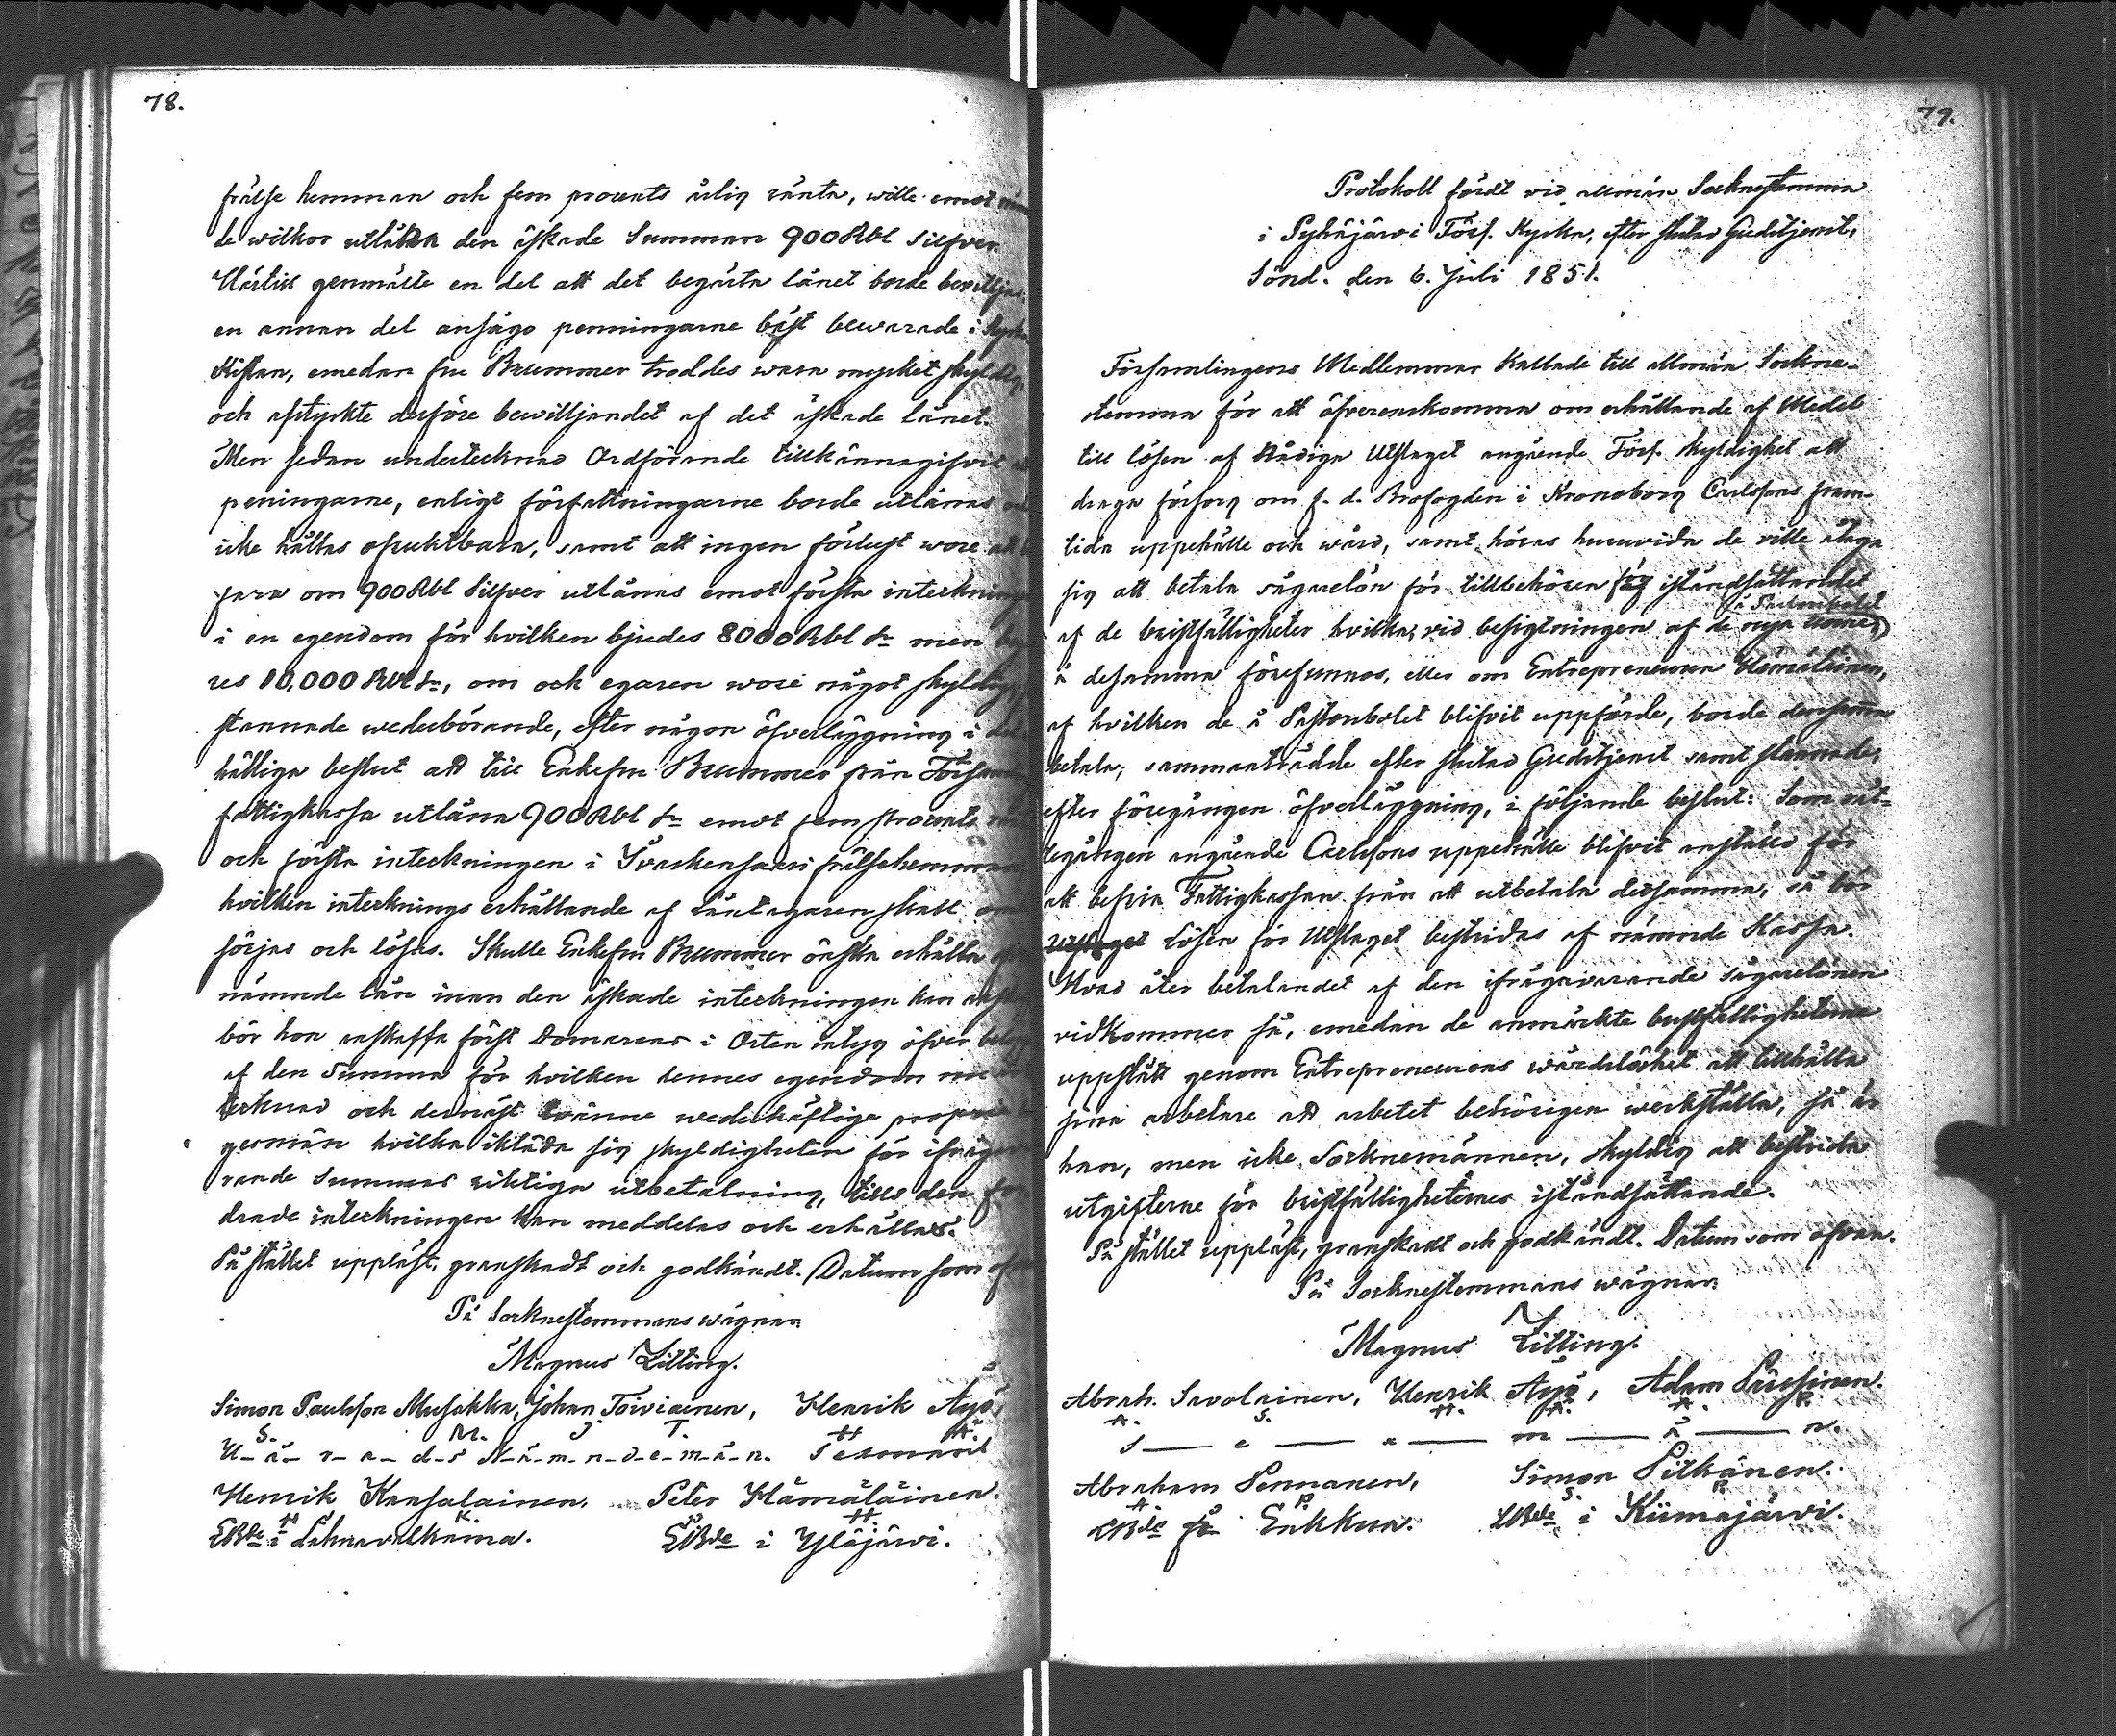 78.
frälse hemman och fem procents årlig ränta, wille emot
de wilkor utlåna den äskade Summan 900 Rbl Silfver.
Härtill genmälte en del att det begärta lånet borde bevilljas
en annan del ansågo penningarne bäst bewarade i
Kistan, emedan fru Brummer troddes wara mycket skyldig,
och afstyrkte derföre bewilljandet af det äskade lånet.
Men sedan undertecknad Ordförande tillkännagifvit
peningarne, enligt författningarne borde utlånas
icke hållas ofruktbara, samt att ingen förlust wore
fara om 900 Rbl Silfver utlånas emot första inteckning
i en egendom för hvilken bjudes 8000 Rbl Sr men
res 10,000 Rbl Sr, om och egaren wore något skyldig,
stannade wederbörande, efter någon öfverläggning i det
hälliga beslut att till Enkefru Brummer från
fattigkassa utlåna 900 Rbl Sr emot fem procents
och första inteckningen i Svarkensaari frälsehemman
hvilken intecknings erhållande af låntagaren skall
sörjas och lösas. Skulle Enkefru Brummer önska erhålla
nämnde lån innan den äskade inteckningen kan
bör hon anskaffa först Domarens i Orten intyg öfver
af den Summa för hvilken hennes egendom
tecknad och dernäst tvänne wederhäftige
germän hvilka ikläda sig skyldigheten för
rande summas riktiga utbetalning, tills den
drade inteckningen kan meddelas och erhållas.
På stället uppläst, granskadt och godkändt. Datum som
På Socknestemmans wägnar
Magnus Lilling.
Simon Paulsson Musakka, Johan Toiviainen, Henrik Äyö
S. M. J. T. H. Ä.
H-ä-r-a-d-s N-ä-m-n-d-e-m-ä-n.
Henrik Kansalainen, Peter Hämäläinen.
H K P H.
EBde i EBde i Yläjärvi.
79.
Protokoll fördt vid allmän Socknestemma
i Pyhäjärvi Förs. Kyrka, efter slutad Gudstjenst,
Sönd. den 6. Juli 1851.
Församlingens Medlemmar kallade till allmän Sockne-
stemma för att öfverenskomma om erhållande af Medel
till lösen af Nådiga Utslaget angående Förs. skyldighet att
draga försorg om f. d. Brofogden i Kronoborg Carlssons fram-
tida uppehälle och wård, samt höras huruvida de ville åtaga
sig att betala sågarelön för tillbehören för iståndsättandet
å Pastorsbolet
af de bristfälligheter hvilka, vid besigtningen af de nya
å desamma förefunnos, eller om Entrepreneuren Hämäläinen,
af hvilken de å Pastorsbolet blifvit uppförde, borde densamma
betala; sammanträdde efter slutad Gudstjenst samt stannade,
efter föregången öfverläggning, i följande beslut: Som rät-
tegången angående Carlssons uppehälle blifvit anstäld för
att befria Fattigkassan från att utbetala detsamma, så bör
Utslaget lösen för Utslaget bestridas af nämnde Kassa.
Hvad åter betalandet af den ifrågavarande sågarelönen
vidkommer så, emedan de anmärkte bristfälligheterna
uppstått genom Entrepreneurens wårdslöshet att tillhålla
sina arbetare att arbetet behörigen werkställa, så är
han, men icke Socknemännen, skyldig att bestrida
utgifterne för bristfälligheternes iståndsättande.
På stället uppläst, granskadt och godkändt. Datum som ofvan.
På Socknestemmans wägnar:
Magnus Lilling.
Abrah. Savolainen, Henrik Äyö, Adam
A. S. H. Ä. A. P.
S — e — x — m — ä — n.
Abraham Pennanen, Simon Pitkänen.
A P S. P.
EBde fr. Enkkua. EBde i Kiimajärvi.